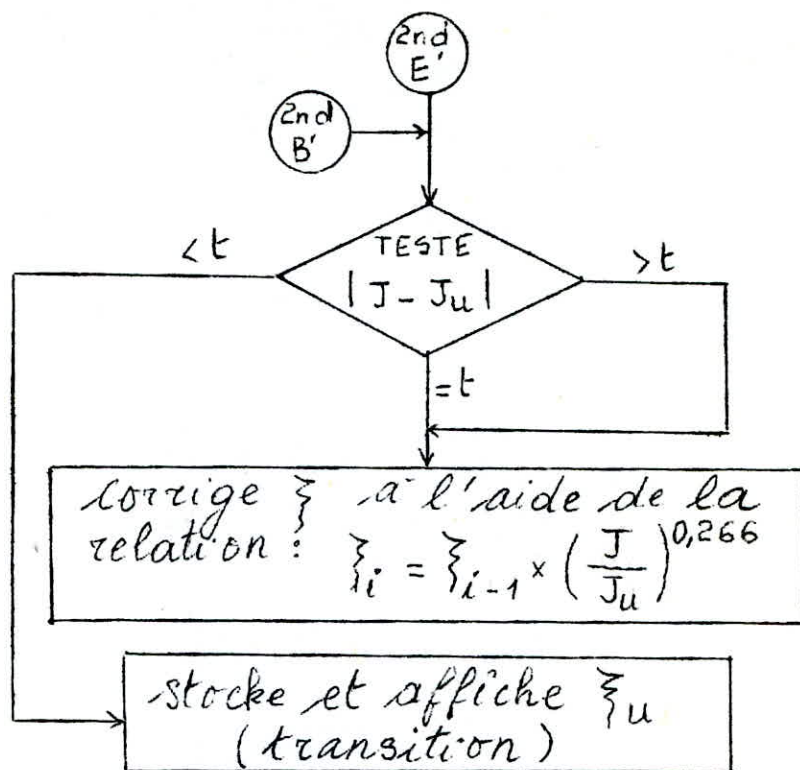 2nd
E'
2nd
B'
<t
TESTE
>t
| J - Ju |
=t
corrige ξ à l'aide de la
relation : ξi = ξi-1 × (J/Ju)^0,266
stocke et affiche ξu
(transition)